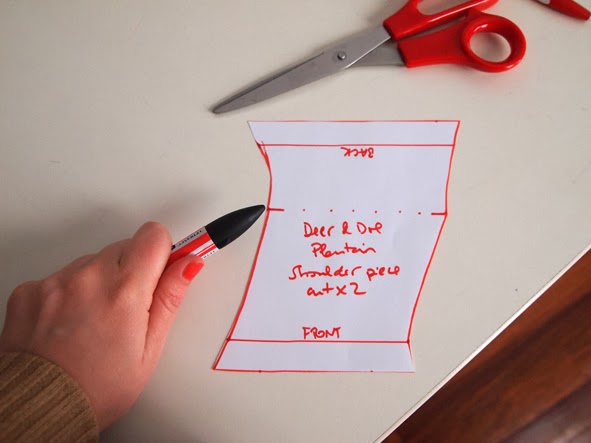 BACK
Deer & Doe
Plantain
shoulder piece
cut x 2
FRONT